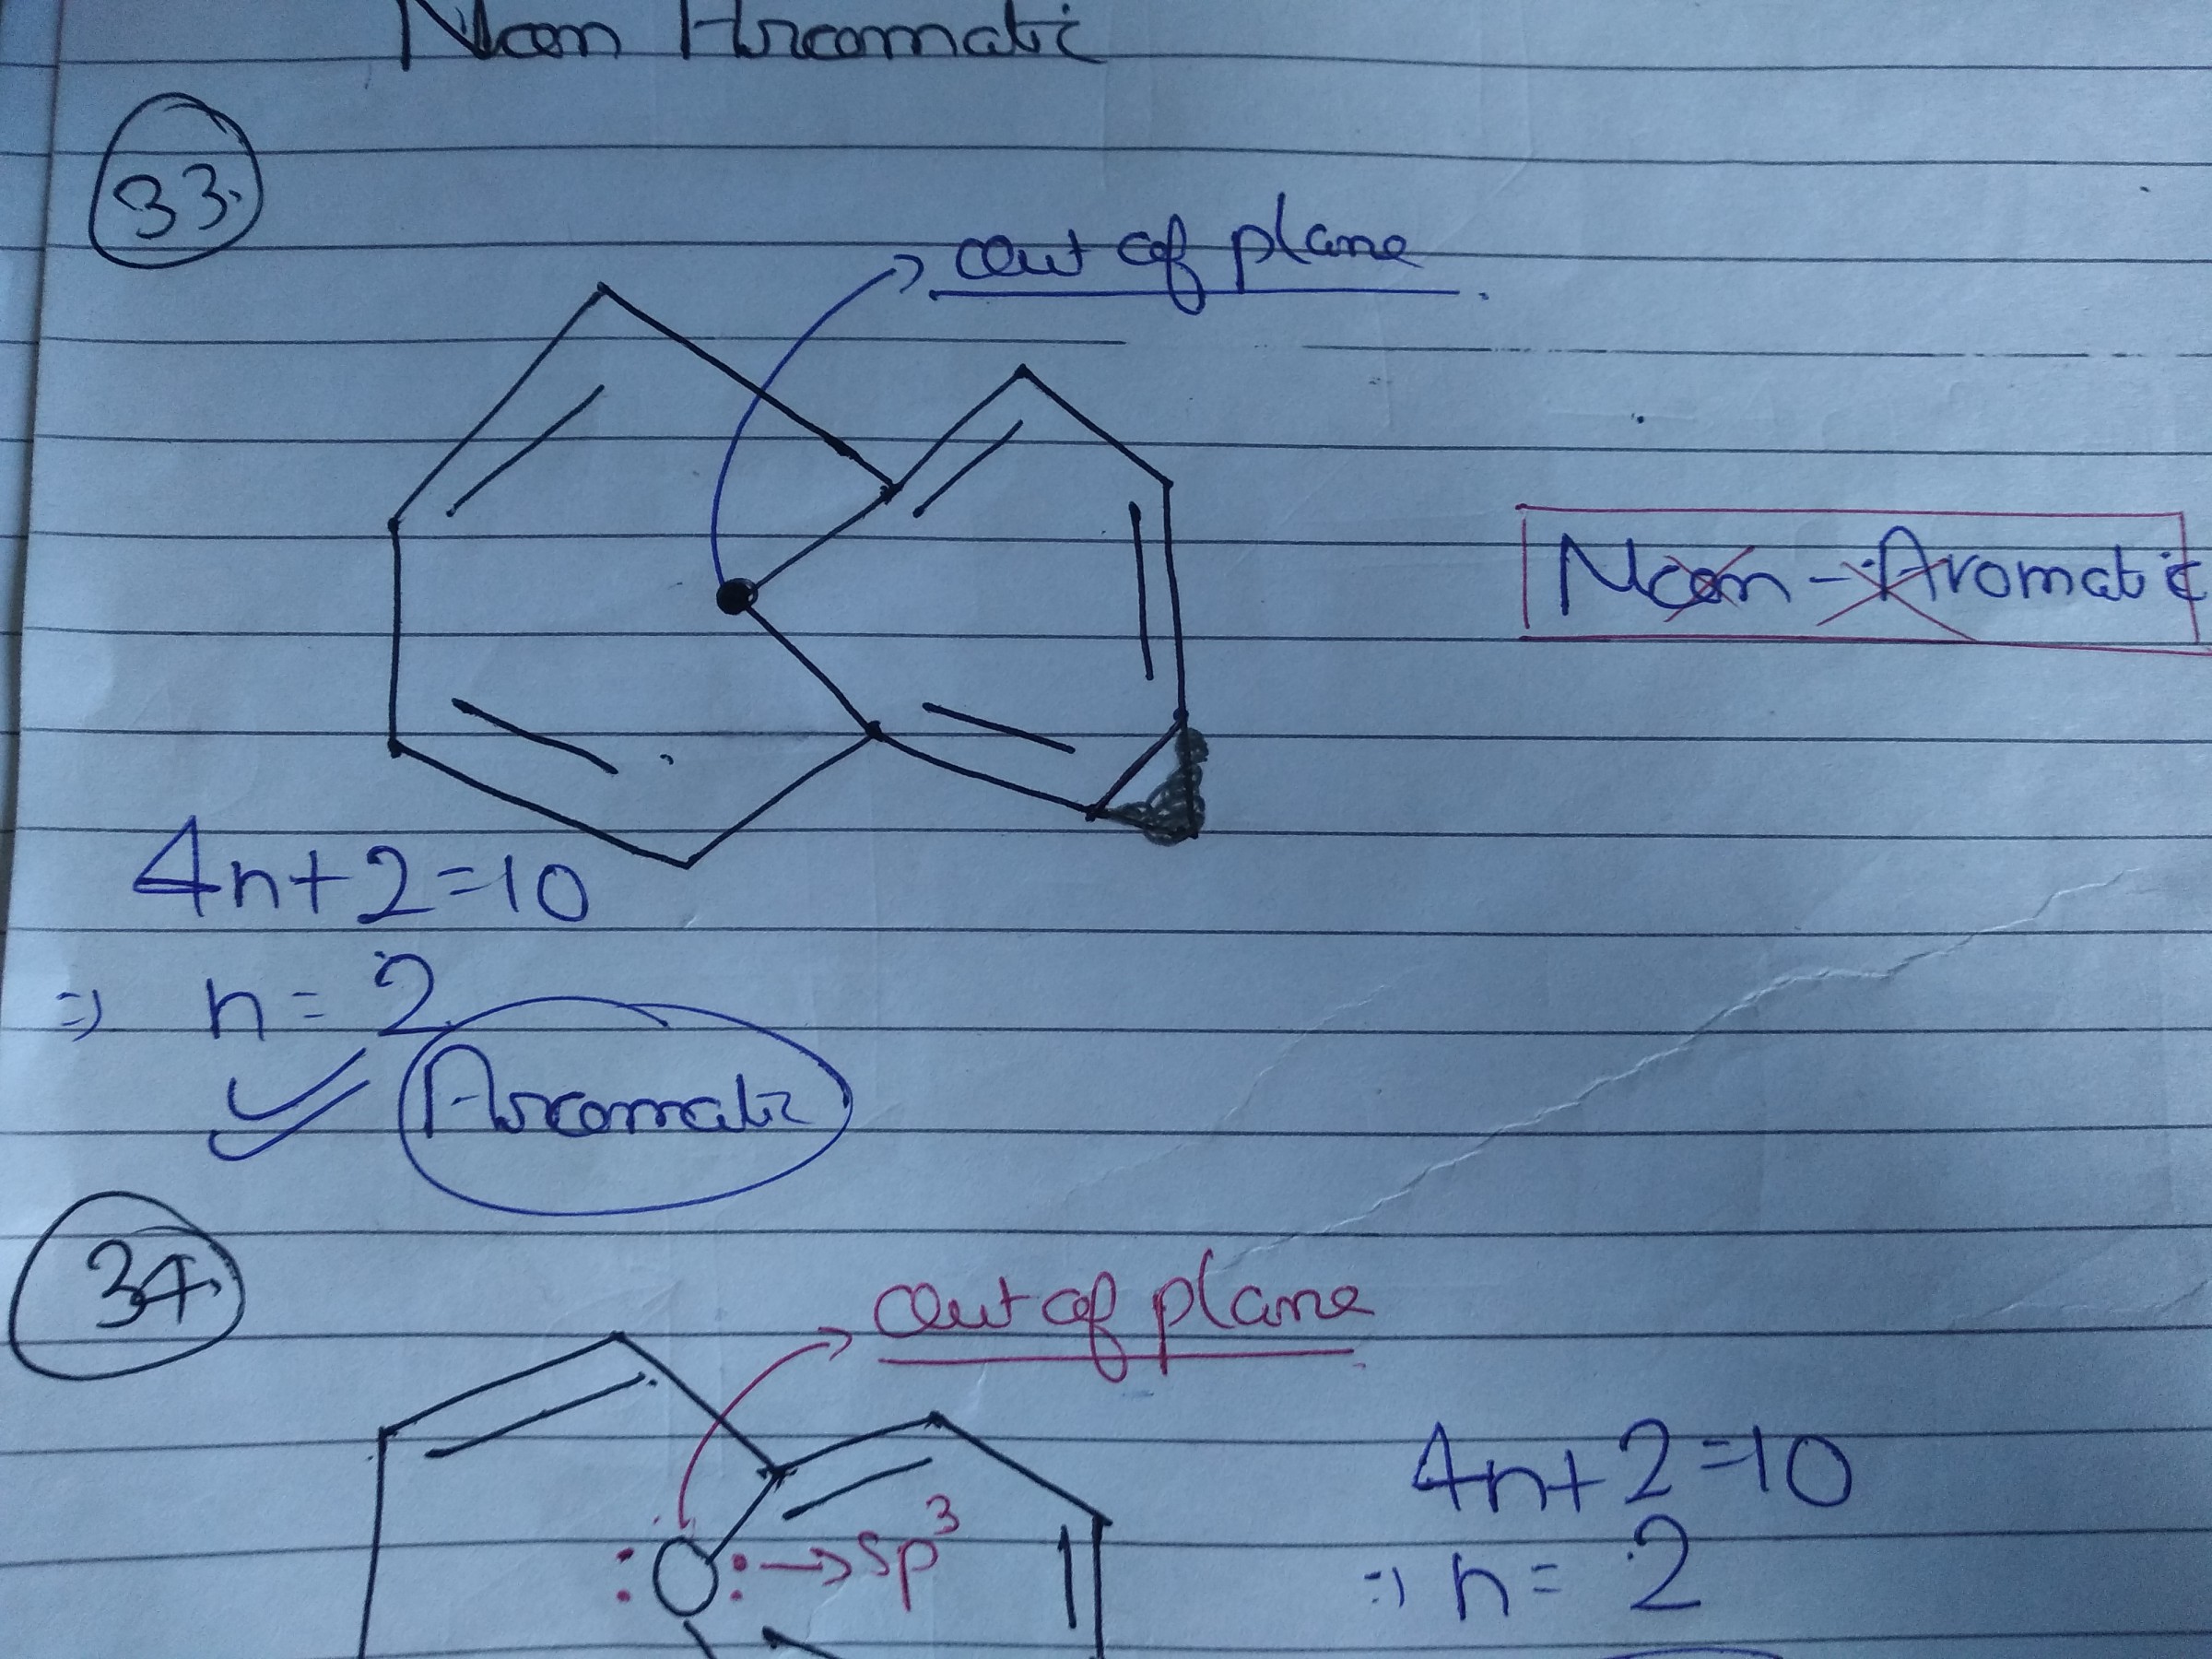 Non Aromatic
33.
out of plane
Non-Aromatic
4n+2=10
=> n=2
Aromatic
34.
out of plane
:O: → sp³
4n+2=10
=> n= 2